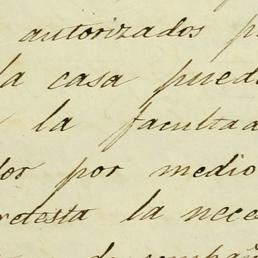 autorizados p
la casa pued
la facultad
dor por medio
rotesta la nece
de compañ